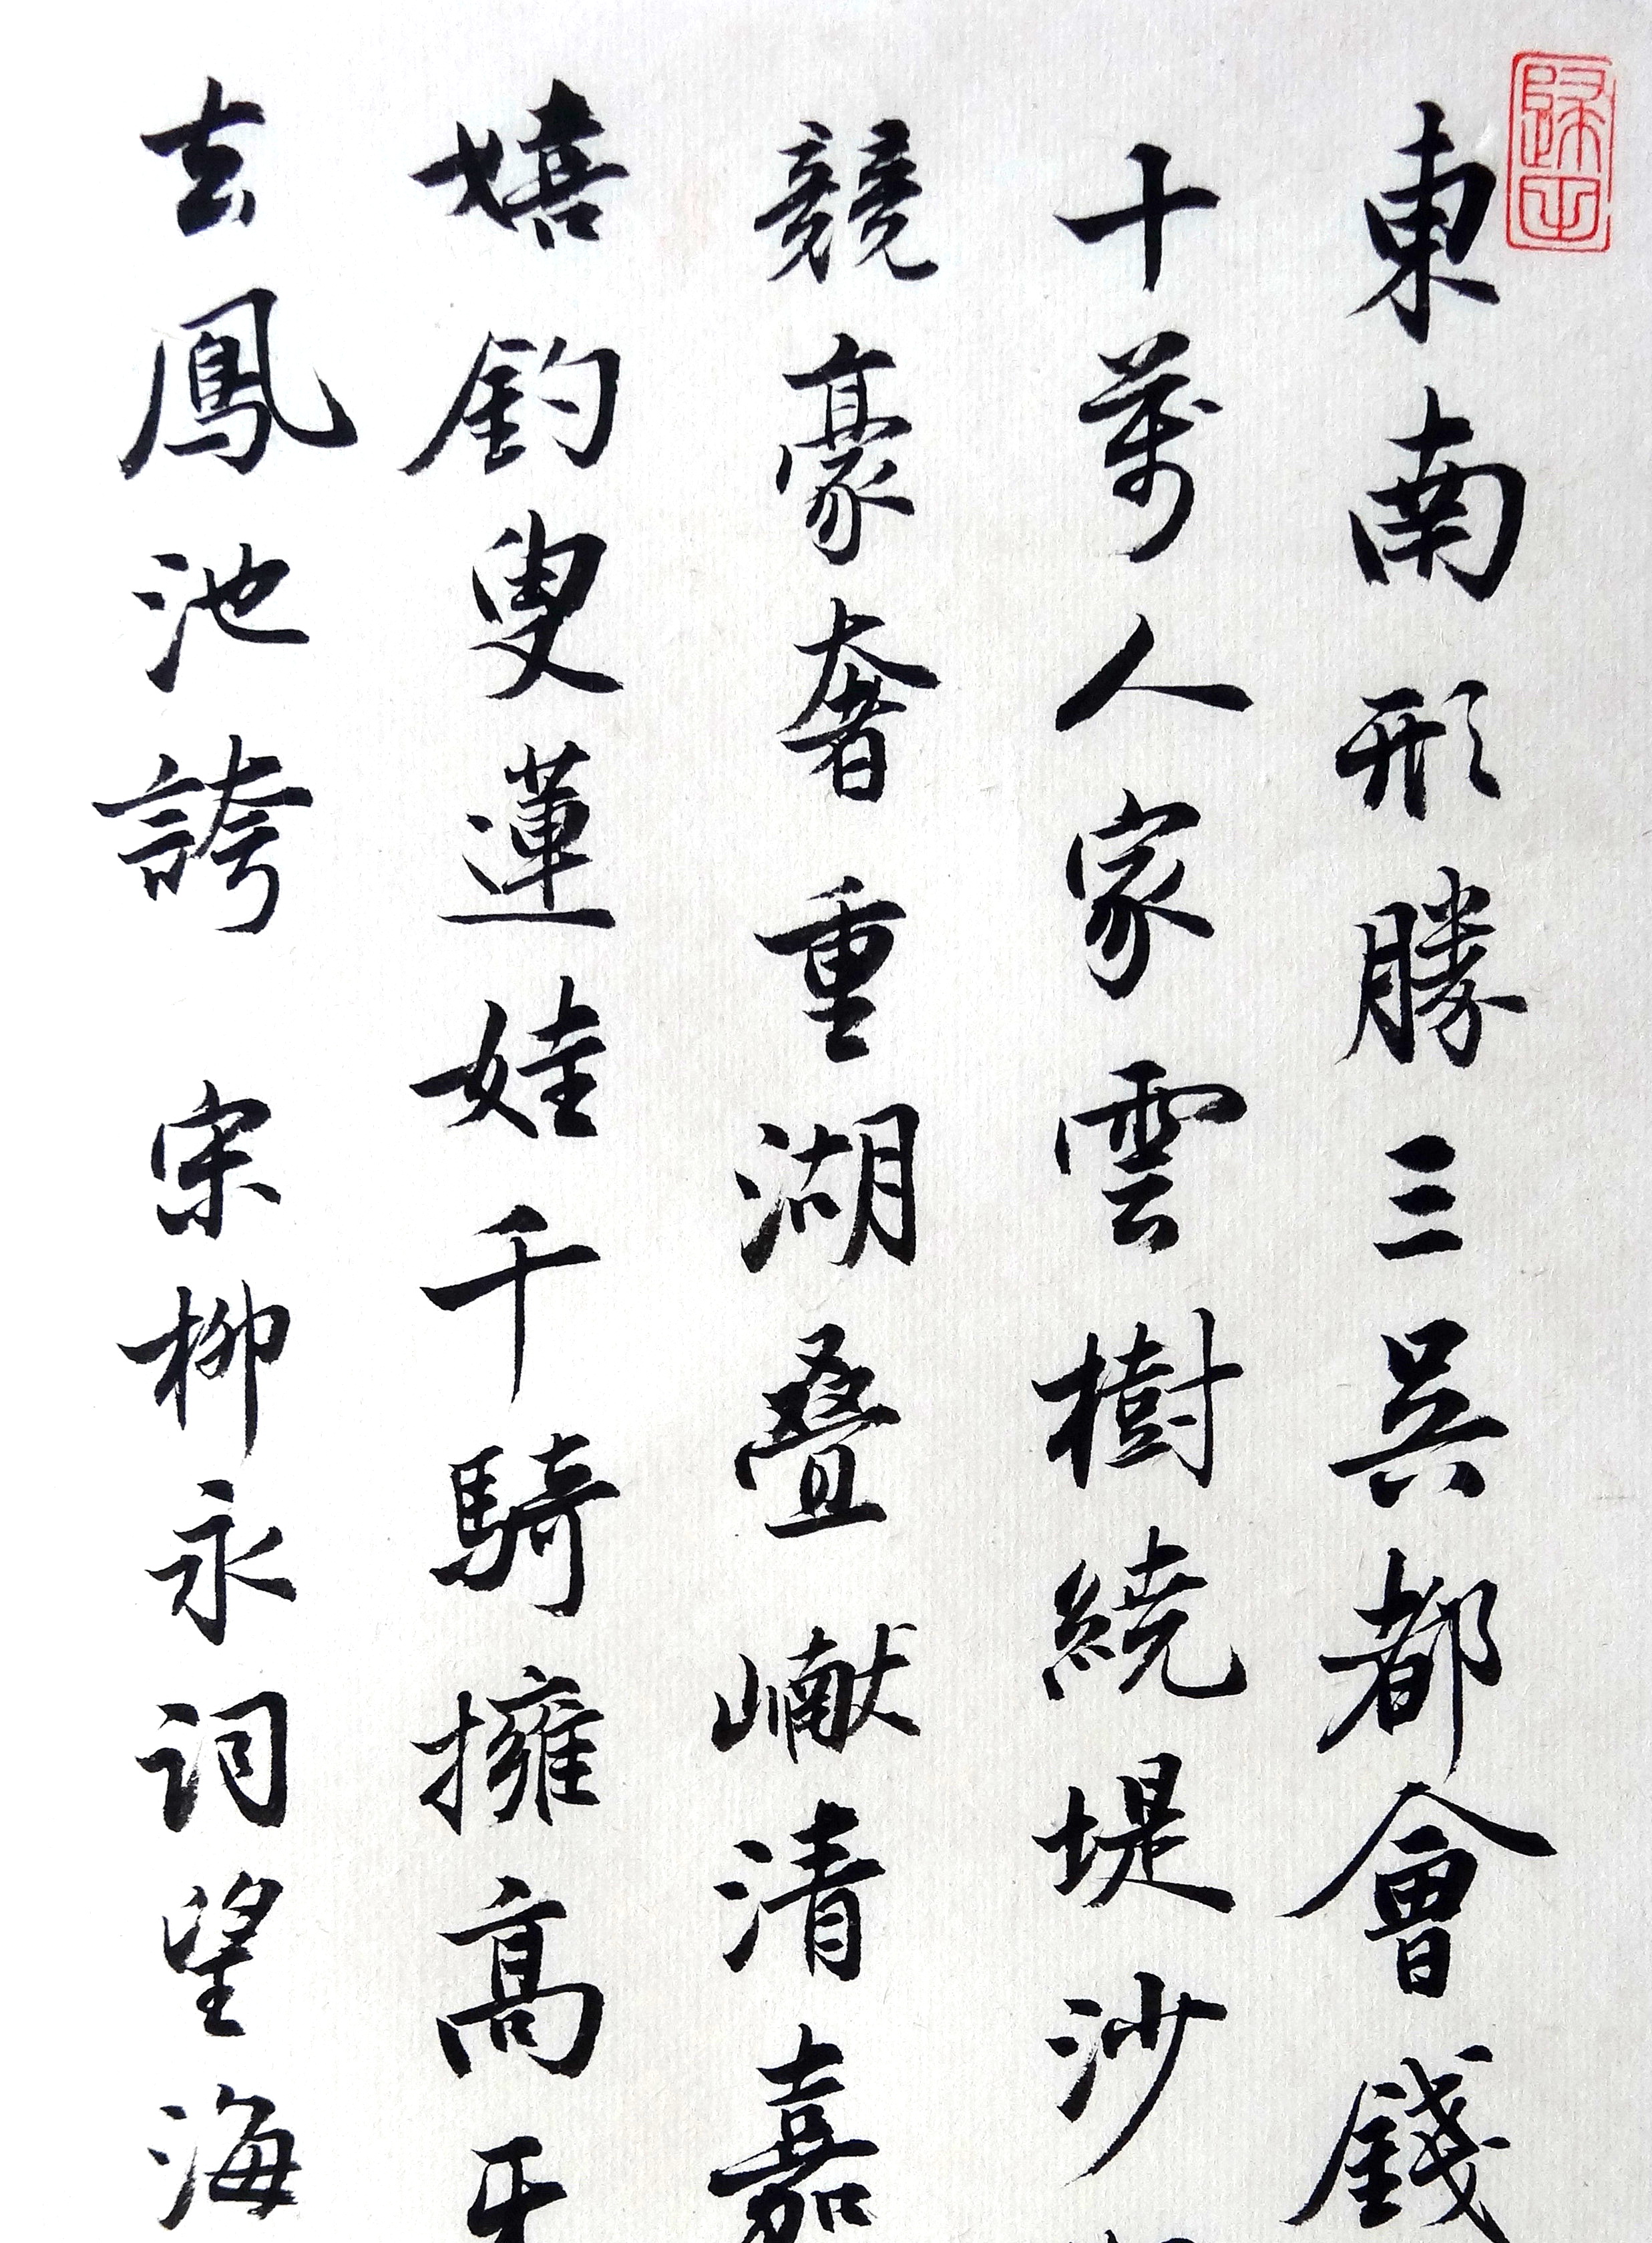 東南形勝三吳都會錢
十萬人家雲樹繞堤沙
競豪奢重湖叠巘清嘉
嬉釣叟蓮娃千騎擁高牙
去鳳池誇 宋柳永詞望海